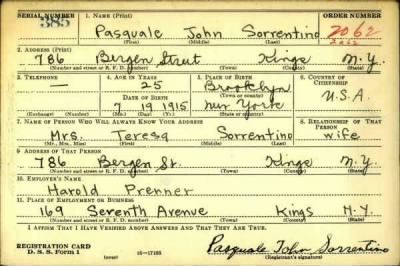 SERIAL NUMBER 1. NAME (Print) ORDER NUMBER
385 Pasquale John Sorrentino 2062
(First) (Middle) (Last) 2062
2. ADDRESS (Print)
786 Bergen Street Kings N.Y.
(Number and street or R. F. D. number) (Town) (County) (State)
3. TELEPHONE 4. AGE IN YEARS 5. PLACE OF BIRTH 6. COUNTRY OF CITIZENSHIP
— 25 Brooklyn
DATE OF BIRTH (Town or county) U.S.A.
7 19 1915 New York
(Exchange) (Number) (Mo.) (Day) (Yr.) (State or country)
7. NAME OF PERSON WHO WILL ALWAYS KNOW YOUR ADDRESS 8. RELATIONSHIP OF THAT PERSON
Mrs. Teresa Sorrentino wife
(Mr., Mrs., Miss) (First) (Middle) (Last)
9. ADDRESS OF THAT PERSON
786 Bergen St. Kings N.Y.
(Number and street or R. F. D. number) (Town) (County) (State)
10. EMPLOYER'S NAME
Harold Prenner
11. PLACE OF EMPLOYMENT OR BUSINESS
169 Seventh Avenue Kings N.Y.
(Number and street or R. F. D. number) (Town) (County) (State)
I AFFIRM THAT I HAVE VERIFIED ABOVE ANSWERS AND THAT THEY ARE TRUE.
REGISTRATION CARD
D. S. S. Form 1 (over) 16—17105 Pasquale John Sorrentino
(Registrant's signature)